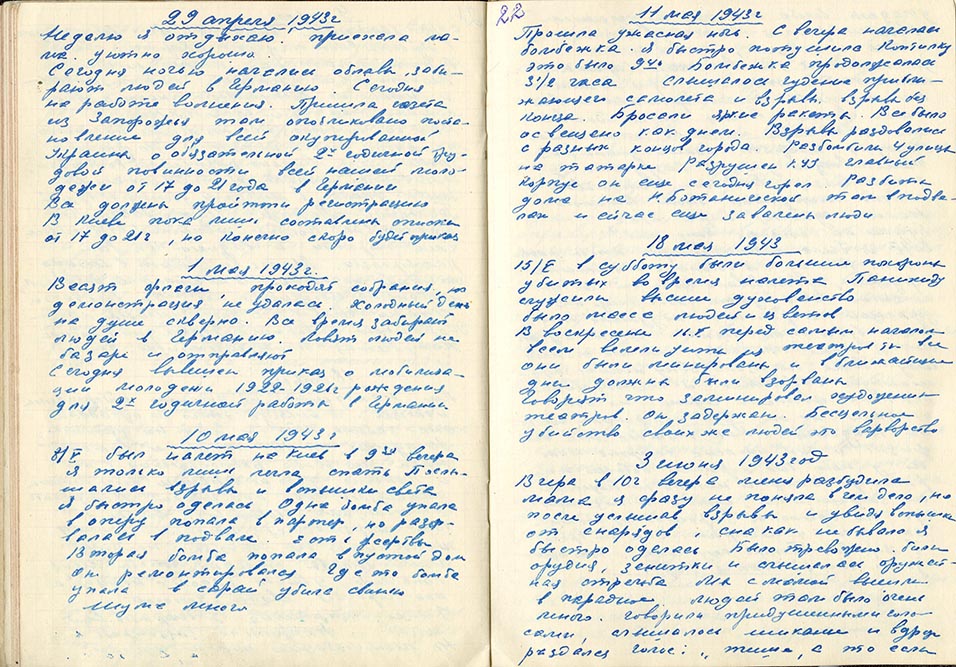 29 апреля 1943г
Неделю я отдыхаю, приехала ма-
ма. уютно хорошо.
Сегодня ночью начались облавы, заби-
рают людей в Германию. Сегодня
на работе волнения. Пришла газета
из Запорожья там опубликовано поста-
новление для всей окупированной
Украины о обязательной 2х годичной тру-
довой повинности всей нашей моло-
дежи от 17 до 21 года в Германии
Все должны пройти регистрацию
В Киеве пока лишь составлены списки
от 17 до 21г, но конечно скоро будет приказ
1 мая 1943г.
Весят флаги проходят собрания, но
демонстрация не удалась. Холодный день
на душе скверно. Все время забирают
людей в Германию. Ловят людей на
базаре и отправляют
Сегодня вывешен приказ о мобилиза-
ции молодежи 1922-1926г рождения
для 2х годичной работы в Германии
10 мая 1943г
8/V был налет на Киев в 9 30 вечера
я только лишь легла спать Послы-
шались взрывы и вспышки света
я быстро оделась Одна бомба упала
в оперу попала в партер, но разор-
валась в подвале. есть жертвы
Вторая бомба попала в пустой дом
он ремонтировался Где то бомба
упала в сарай убила свинью
Шуму много
22
11 мая 1943г
Прошла ужасная ночь. С вечера началась
бомбежка. я быстро потушила коптилку
это было 9 40 Бомбежка продолжалась
3 1/2 часа слышалось гудение прибли-
жающегося самолета и взрывы, взрывы без
конца. Бросали яркие ракеты. Все было
освещено как днем. Взрывы раздовались
с разных концов города. Разбомбили 4 улицы
на татарке Разрушен КИЗ главный
корпус он еще сегодня горел. Разбиты
дома на К. Ботанической там в подва-
лах и сейчас еще завалены люди
18 мая 1943
15/V в субботу были большие похороны
убитых во время налета Панихиду
служили высшие духовенство
было масса людей и цветов
В воскресение 16.V перед самым началом
всем велели уйти из театров
они были минированы и в ближайшие
дни должны были взорваны
Говорят что заминировал художник
театров. Он задержан. Бесцельное
убийство своих же людей это варварство
3 июня 1943 год
Вчера в 10г вечера меня разбудила
мама я сразу не поняла в чем дело, но
после услышав взрывы и увидя вспышки
от снарядов, сна как не бывало я
быстро оделась Было тревожно. били
орудия, зенитки и слышалась оружей-
ная стрельба Мы с мамой вышли
в парадное людей там было очень
много. говорили придушенными голо-
сами, слышалось шикание и вдруг
раздался голос: „тише, а то если